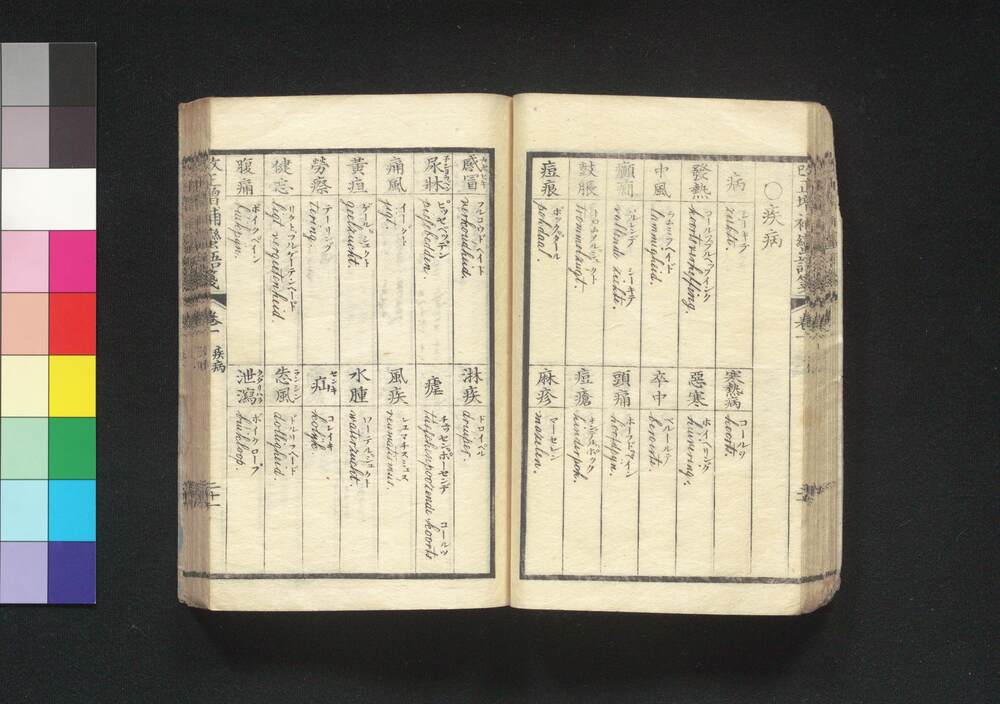 ○疾病
病
シーキテ
ziekte.
發熱
コールツフルヘッヒング
koortsverheffing.
中風
ラムミフヘイド
lammigheid.
癲癇
ハルレンデ シーキテ
vallende ziekte.
鼓脹
トロムメルスュクト
trommelzugt.
痘痕
ポックダール
pokdaal.
寒熱病
コールツ
koorts.
惡寒
ホイヘリング
huivering.
卒中
ベルールテ
beroerte.
頭痛
ホーフドペイン
hoofdpyn.
痘瘡
キンデルポック
kinderpok.
麻疹
マーセレン
mazelen.
感冒
フルコウドヘイド
verkoudheid.
尿牀
ピスセベッデン
pissebedden.
痛風
イーグト
jigt.
黃疸
ゲールシュクト
geelzucht.
勞瘵
テーリング
tering.
健忘
リグトフルゲーテンヘイド
ligt vergeetenheid.
腹痛
ボイクペイン
buikpyn.
淋疾
ドロイペル
druiper.
瘧
コールツ
koorts
風疾
reumatismus.
水腫
ワートルシュクト
waterzucht.
疝
センキ
コレイキ
kolyk.
恙風
ドルヘイド
dolligheid.
泄瀉
クダリハラ
ボイクロープ
buikloop.
改正增補蠻語箋
卷一
疾病
二十一